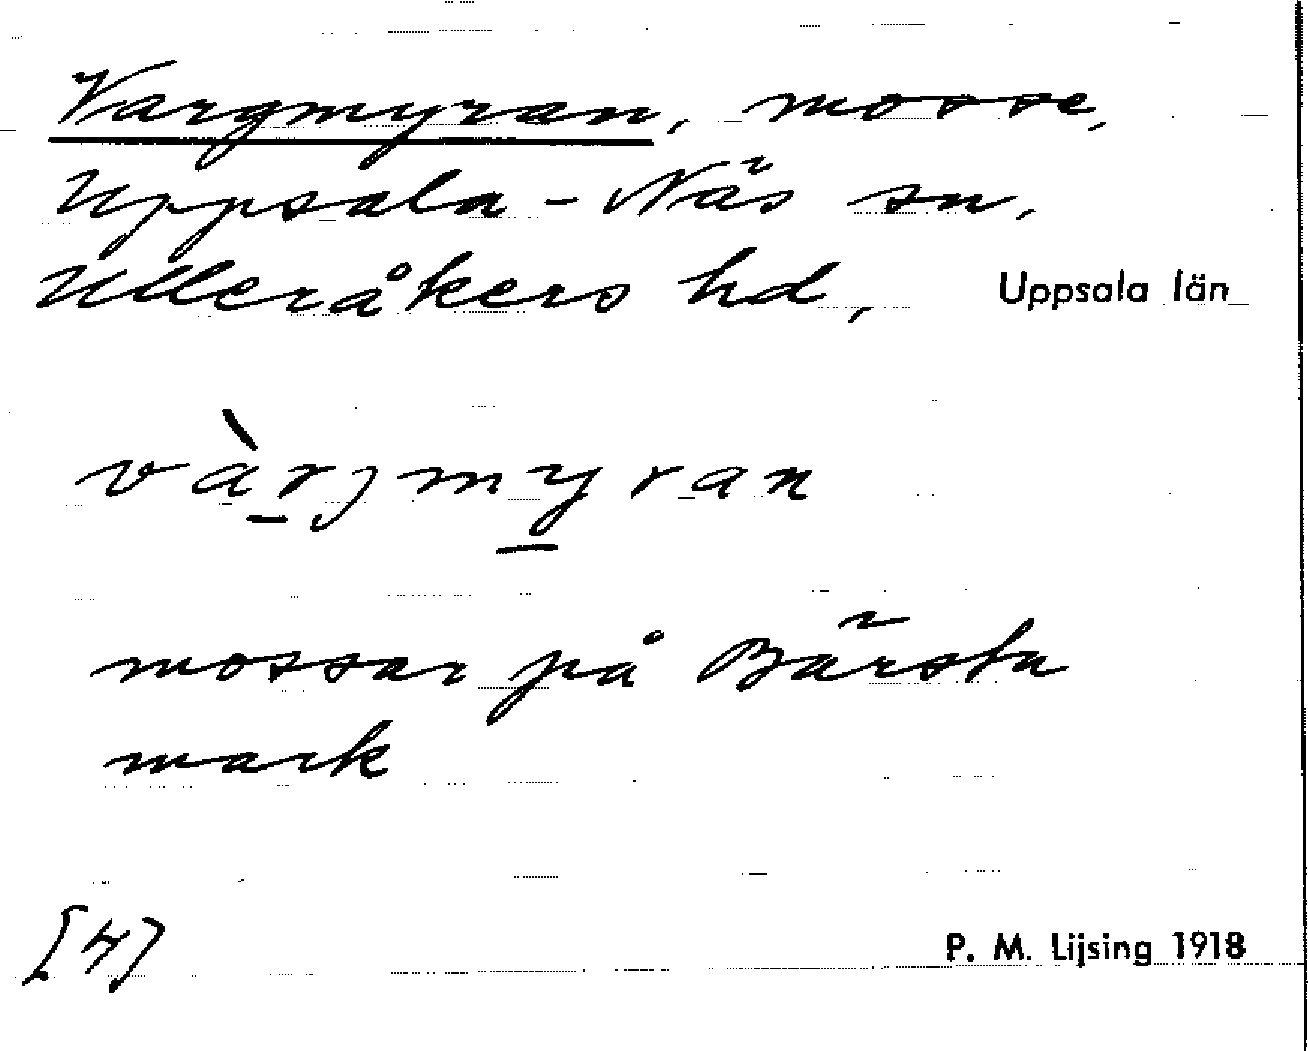 Vargmyran, mosse,
Uppsala-Näs sn,
Ulleråkers hd, Uppsala län
vàrjmyran
mossar på Bärsta
mark
[4]
P. M. Lijsing 1918